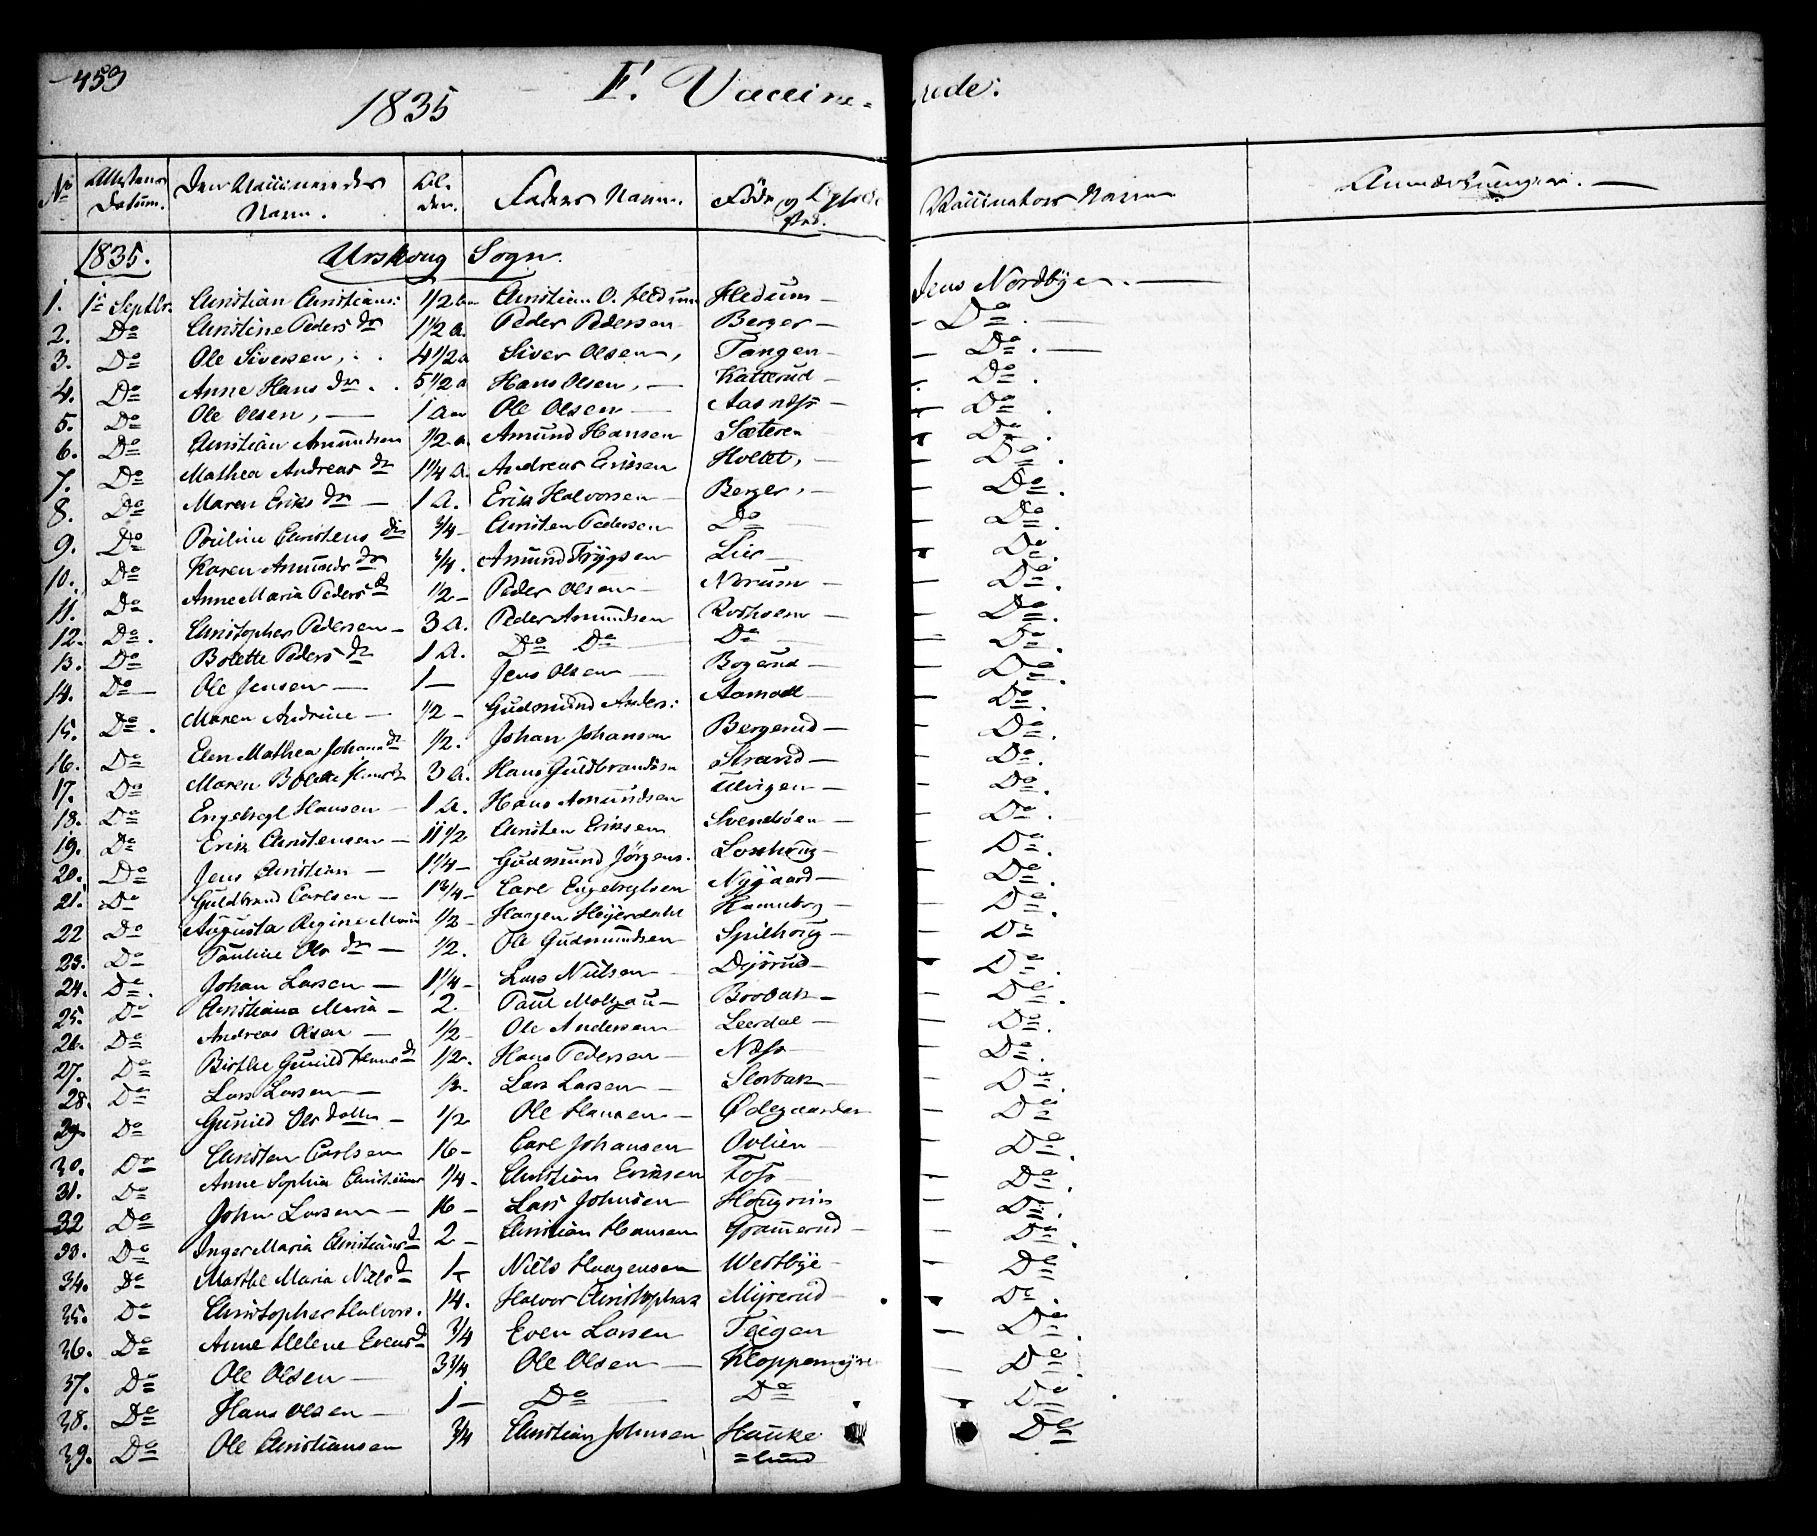 459
1835
F. Vaccine-rede:
No Attestens Datum. Den Vaccineredes Navn. Al-der. Faders Navn. Føde og Opholds Sted. Vaccinateurs Navn Anmærkninger.
1835. Urskoug Sogn.
1. 1e Septbr. Christian Christians: 1/2 Christian O. Hedum Hedum Jens Nordbye
2. Do Christine Peders dr 1 1/2 a. Peder Pedersen Berger Do
3. Do Ole Siversen 4 1/2 a Siver Olsen Tangen Do
4. Do Anne Hans dr 5 1/2 a Hans Olsen Katterud Do
5. Do Ole Olsen 1 a Ole Olsen Aasnæss Do
6. Do Christian Amundsen 1/2 a. Amund Hansen Sæteren Do
7. Do Mathea Andreas dr 1 1/4 a. Andreas Eriksen Holtet Do
8. Do Maren Eriks dr 1 a. Erik Halvorsen Berger Do
9. Do Pauline Christens dr 3/4 Christen Pedersen Do Do
10. Do Karen Amunds dr 3/4. Amund Trygsen Lier Do
11. Do Anne Maria Peders d 1/2 Peder Olsen Norum Do
12. Do Christopher Pedersen 3 a. Peder Amundsen Rosholm Do
13. Do Bolette Peders dr 1 a. Do Do Do Do
14. Do Ole Jensen 1 Jens Olsen Bogerud Do
15. Do Maren Andrine 1/2 Gudmund Anders: Aamodt Do
16. Do Elen Mathea Johans dr 1/2. Johan Johansen Bergerud Do
17. Do Maren Bolette Hans dr 3 a. Hans Guldbrandsen Strand Do
18. Do Engebregt Hansen 1 a. Hans Amundsen Ulvigen Do
19. Do Erik Christensen 11 1/2 Christen Eriksen Svendsöen Do
20. Do Jens Christian 1 1/4 Gudmund Jörgens. Do
21. Do Guldbrand Carlsen 1 3/4 Carl Engebregtsen Nygaard Do
22 Do Augusta Regine Maria 1/2 Haagen Heyerdahl Do
23. Do Pauline Ols dr 1/2. Ole Gudmundsen Spilhoug Do
24. Do Johan Larsen 1 1/4 Lars Nielsen Do
25. Do Christiana Maria 2. Paul Molzau Do
26. Do Andreas Olsen 1/2 Ole Andersen Leerdal Do
27. Do Birthe Gunild Hans d 1/2. Hans Pedersen Næss Do
28. Do Lars Larsen Lars Larsen Slorbak Do
29. Do Gunild Ols datter 1/2 Ole Hansen Ødegaarden Do
30. Do Christen Carlsen 16 Carl Johansen Ovlien Do
31. Do Anne Sophia Christians 1/4 Christian Eriksen Foss Do
32 Do John Larsen 16 Lars Johnsen Do
33. Do Inger Maria Christians d 2 Christian Hansen Gramerud Do
34. Do Marthe Maria Niels d 1 Niels Haagensen Westbye Do
35. Do Christopher Halvors. 14. Halvor Christophers Myrerud Do
36. Do Anne Helene Evens d 3/4 Even Larsen Teigen Do
37. Do Ole Olsen 3 3/4 Ole Olsen Kloppemyren Do
38. Do Hans Olsen 1 Do Do Do
39. Do Ole Christiansen 3/4 Christian Johnsen Hauke=lund Do